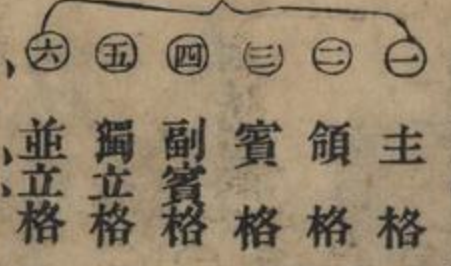 ㊀主格
㊁領格
㊂賓格
㊃副賓格
㊄獨立格
㊅並立格